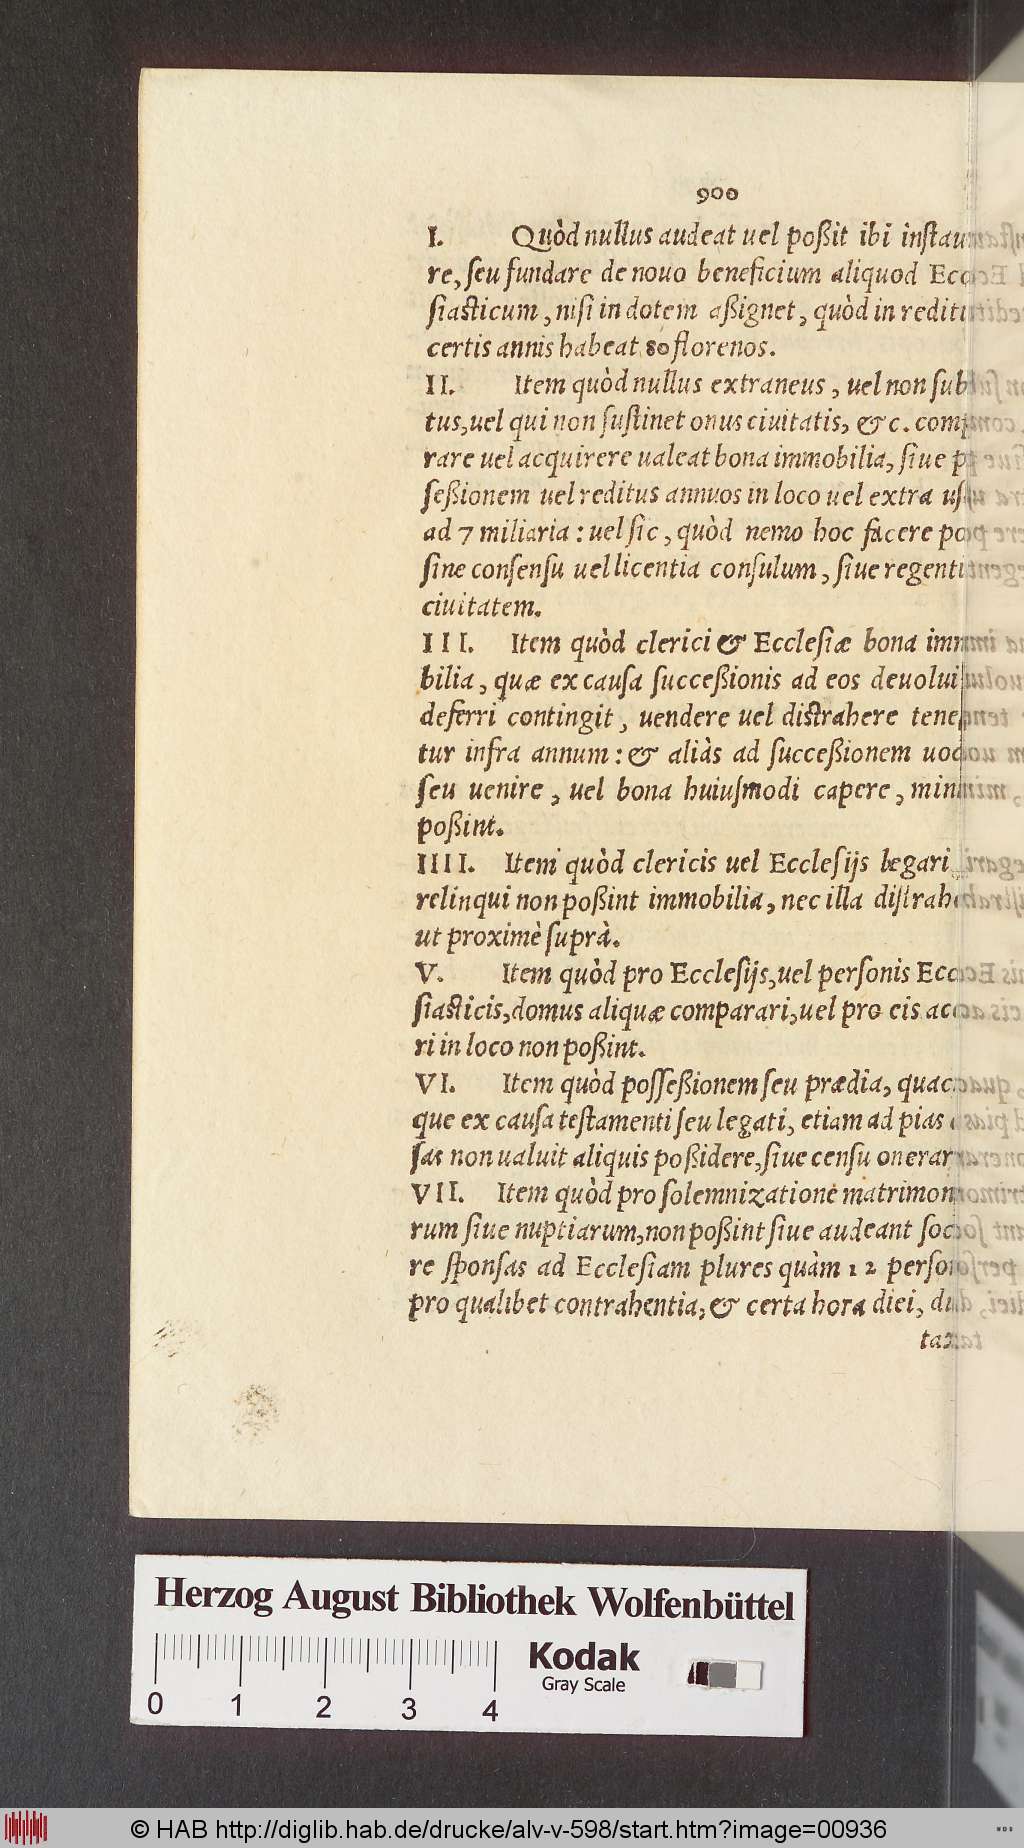 900
I. Quòd nullus audeat uel poßit ibi instau
re, seu fundare de nouo beneficium aliquod Ecc
siasticum, nisi in dotem aßignet, quòd in reditu
certis annis habeat 80 florenos.
II. Item quòd nullus extraneus, uel non sub
tus, uel qui non sustinet onus ciuitatis, &c. com
rare uel acquirere ualeat bona immobilia, siue p
seßionem uel reditus annuos in loco uel extra us
ad 7 miliaria: uel sic, quòd nemo hoc facere po
sine consensu uel licentia consulum, siue regenti
ciuitatem.
III. Item quòd clerici & Ecclesiæ bona im
bilia, quæ ex causa succeßionis ad eos deuolui
deferri contingit, uendere uel distrahere tene
tur infra annum: & aliàs ad succeßionem uoc
seu uenire, uel bona huiusmodi capere, mini
poßint.
IIII. Item quòd clericis uel Ecclesijs legari
relinqui non poßint immobilia, nec illa distrah
ut proximè suprà.
V. Item quòd pro Ecclesijs, uel personis Ecc
siasticis, domus aliquæ comparari, uel pro eis acc
ri in loco non poßint.
VI. Item quòd posseßionem seu prædia, quac
que ex causa testamenti seu legati, etiam ad pias
sas non ualuit aliquis poßidere, siue censu onerar
VII. Item quòd pro solemnizatione matrimon
rum siue nuptiarum, non poßint siue audeant soc
re sponsas ad Ecclesiam plures quàm 12 perso
pro qualibet contrahentia, & certa hora diei, du
tax
Herzog August Bibliothek Wolfenbüttel
Kodak
Gray Scale
0 1 2 3 4
© HAB http://diglib.hab.de/drucke/alv-v-598/start.htm?image=00936